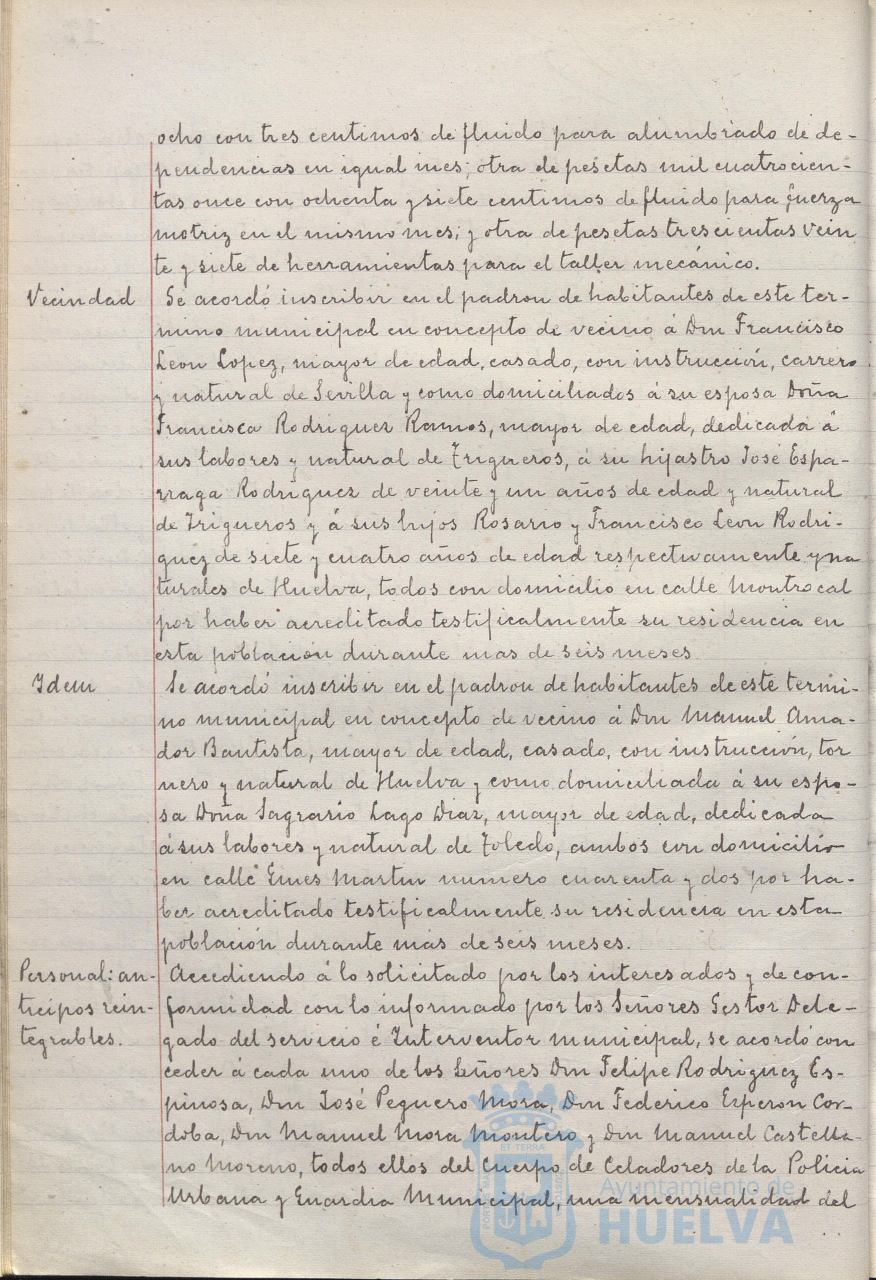 ocho con tres centimos de fluido para alumbrado de de-
pendencias en igual mes; otra de pesetas mil cuatrocien-
tas once con ochenta y siete centimos de fluido para fuerza
motriz en el mismo mes; y otra de pesetas trescientas vein
te y siete de herramientas para el taller mecánico.
Vecindad
Se acordó inscribir en el padron de habitantes de este ter-
mino municipal en concepto de vecino á Don Francisco
Leon Lopez, mayor de edad, casado, con instrucción, carrero
y natural de Sevilla y como domiciliados á su esposa Doña
Francisca Rodriguez Ramos, mayor de edad, dedicada á
sus labores y natural de Trigueros, á su hijastro José Espa-
rraga Rodríguez de veinte y un años de edad y natural
de Trigueros y á sus hijos Rosario y Francisco Leon Rodri-
guez de siete y cuatro años de edad respectivamente y na
turales de Huelva, todos con domicilio en calle Montrocal
por haber acreditado testificalmente su residencia en
esta poblacion durante mas de seis meses
Idem
Se acordó inscribir en el padron de habitantes de este termi-
no municipal en concepto de vecino á Don Manuel Ama-
dor Bautista, mayor de edad, casado, con instrucción, tor
nero y natural de Huelva y como domiciliada á su espo-
sa Doña Sagrario Lago Diaz, mayor de edad, dedicada
á sus labores y natural de Toledo, ambos con domicilio
en calle Gines Martin numero cuarenta y dos por ha-
ber acreditado testificalmente su residencia en esta
población durante más de seis meses.
Personal: an-
ticipos rein-
tegrables.
Accediendo á lo solicitado por los interesados y de con-
formidad con lo informado por los Señores Gestor Dele-
gado del servicio é Interventor municipal, se acordó con
ceder á cada uno de los Señores Don Felipe Rodriguez Es-
pinosa, Don José Peguero Mora, Don Federico Esperon Cor-
doba, Don Manuel Mora Montero y Don Manuel Castella-
no Moreno, todos ellos del Cuerpo de Celadores de la Policia
Urbana y Guardia Municipal, una mensualidad del
Ayuntamiento de
HUELVA